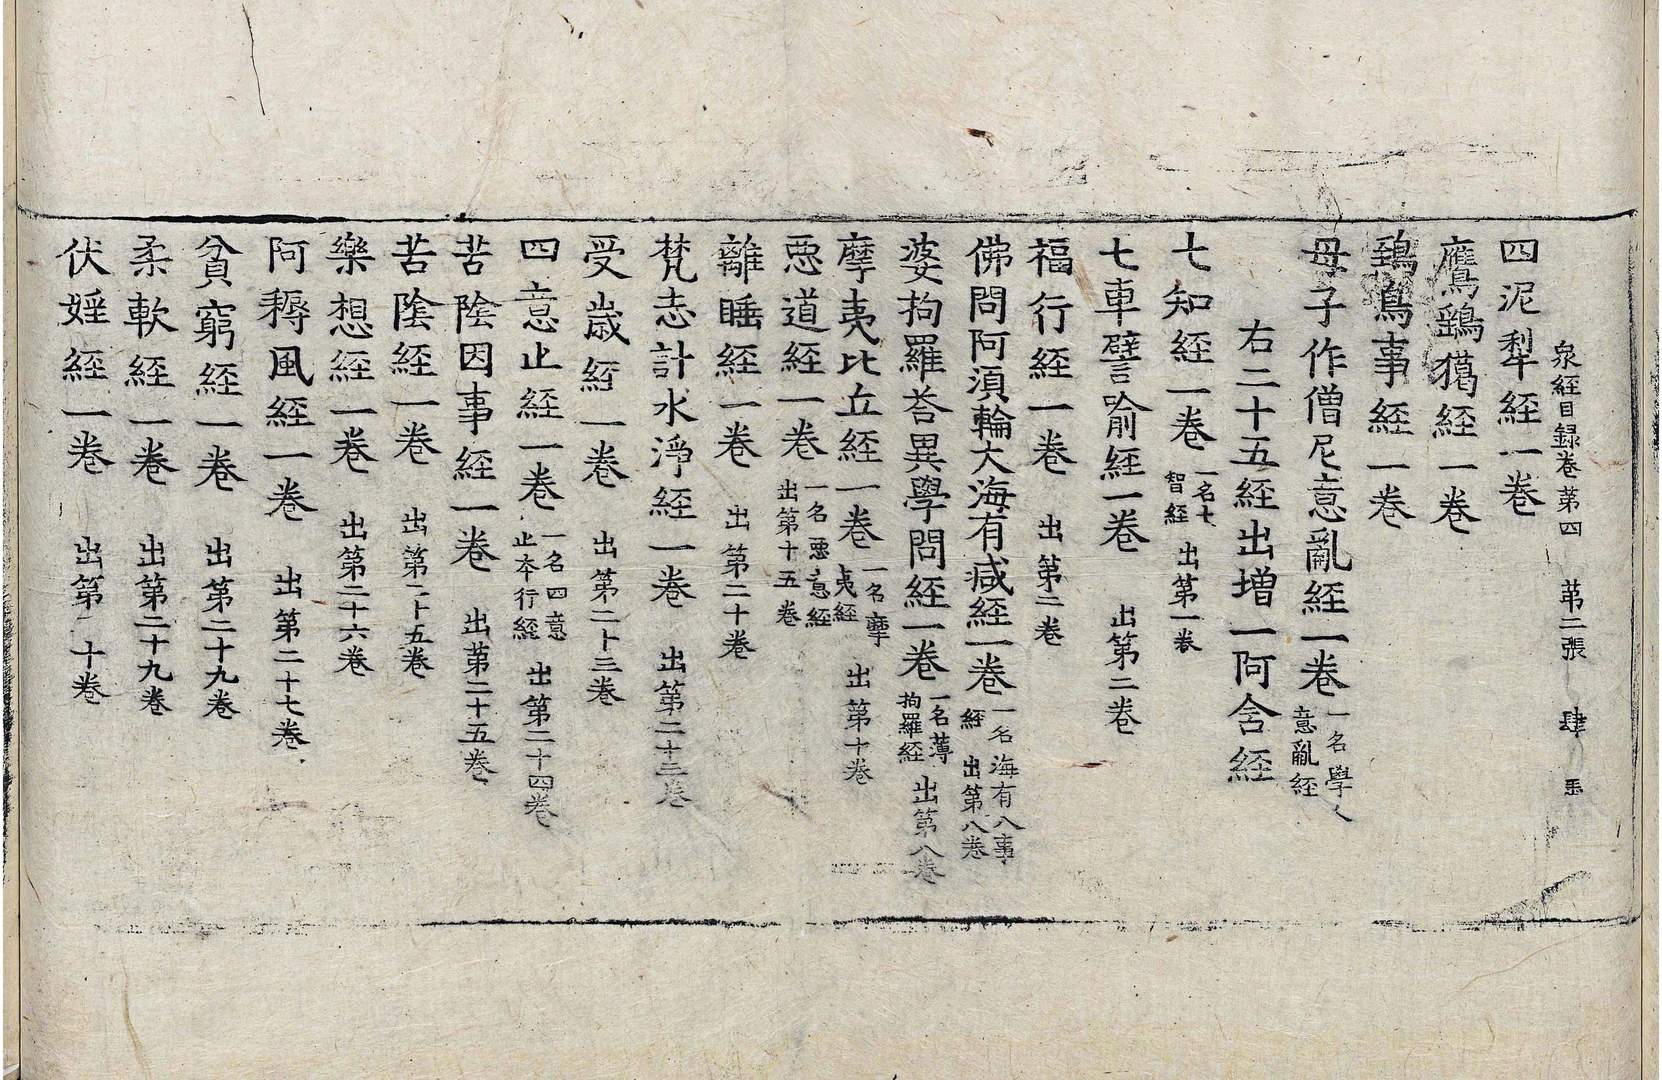 四泥犁經一卷
衆經目録卷第四 第二張 肆
鷹鷂獦經一卷
鵄鳥事經一卷
母子作僧尼意亂經一卷 一名學人意亂經
右二十五經出増一阿含經
七知經一卷 一名七智經 出第一卷
七車譬喻經一卷 出第二卷
福行經一卷 出第二卷
佛問阿湏輪大海有減經一卷 一名海有八事經 出第八卷
婆拘羅荅異學問經一卷 一名薄拘羅經 出第八卷
摩夷比丘經一卷 一名摩夷經 出第十卷
惡道經一卷 一名惡意經 出第十五卷
離睡經一卷 出第二十卷
梵志計水淨經一卷 出第二十三卷
受歲經一卷 出第二十三卷
四意止經一卷 一名四意止本行經 出第二十四卷
苦陰因事經一卷 出第二十五卷
苦陰經一卷 出第二十五卷
樂想經一卷 出第二十六卷
阿耨風經一卷 出第二十七卷
貧窮經一卷 出第二十九卷
柔軟經一卷 出第二十九卷
伏婬經一卷 出第 十卷